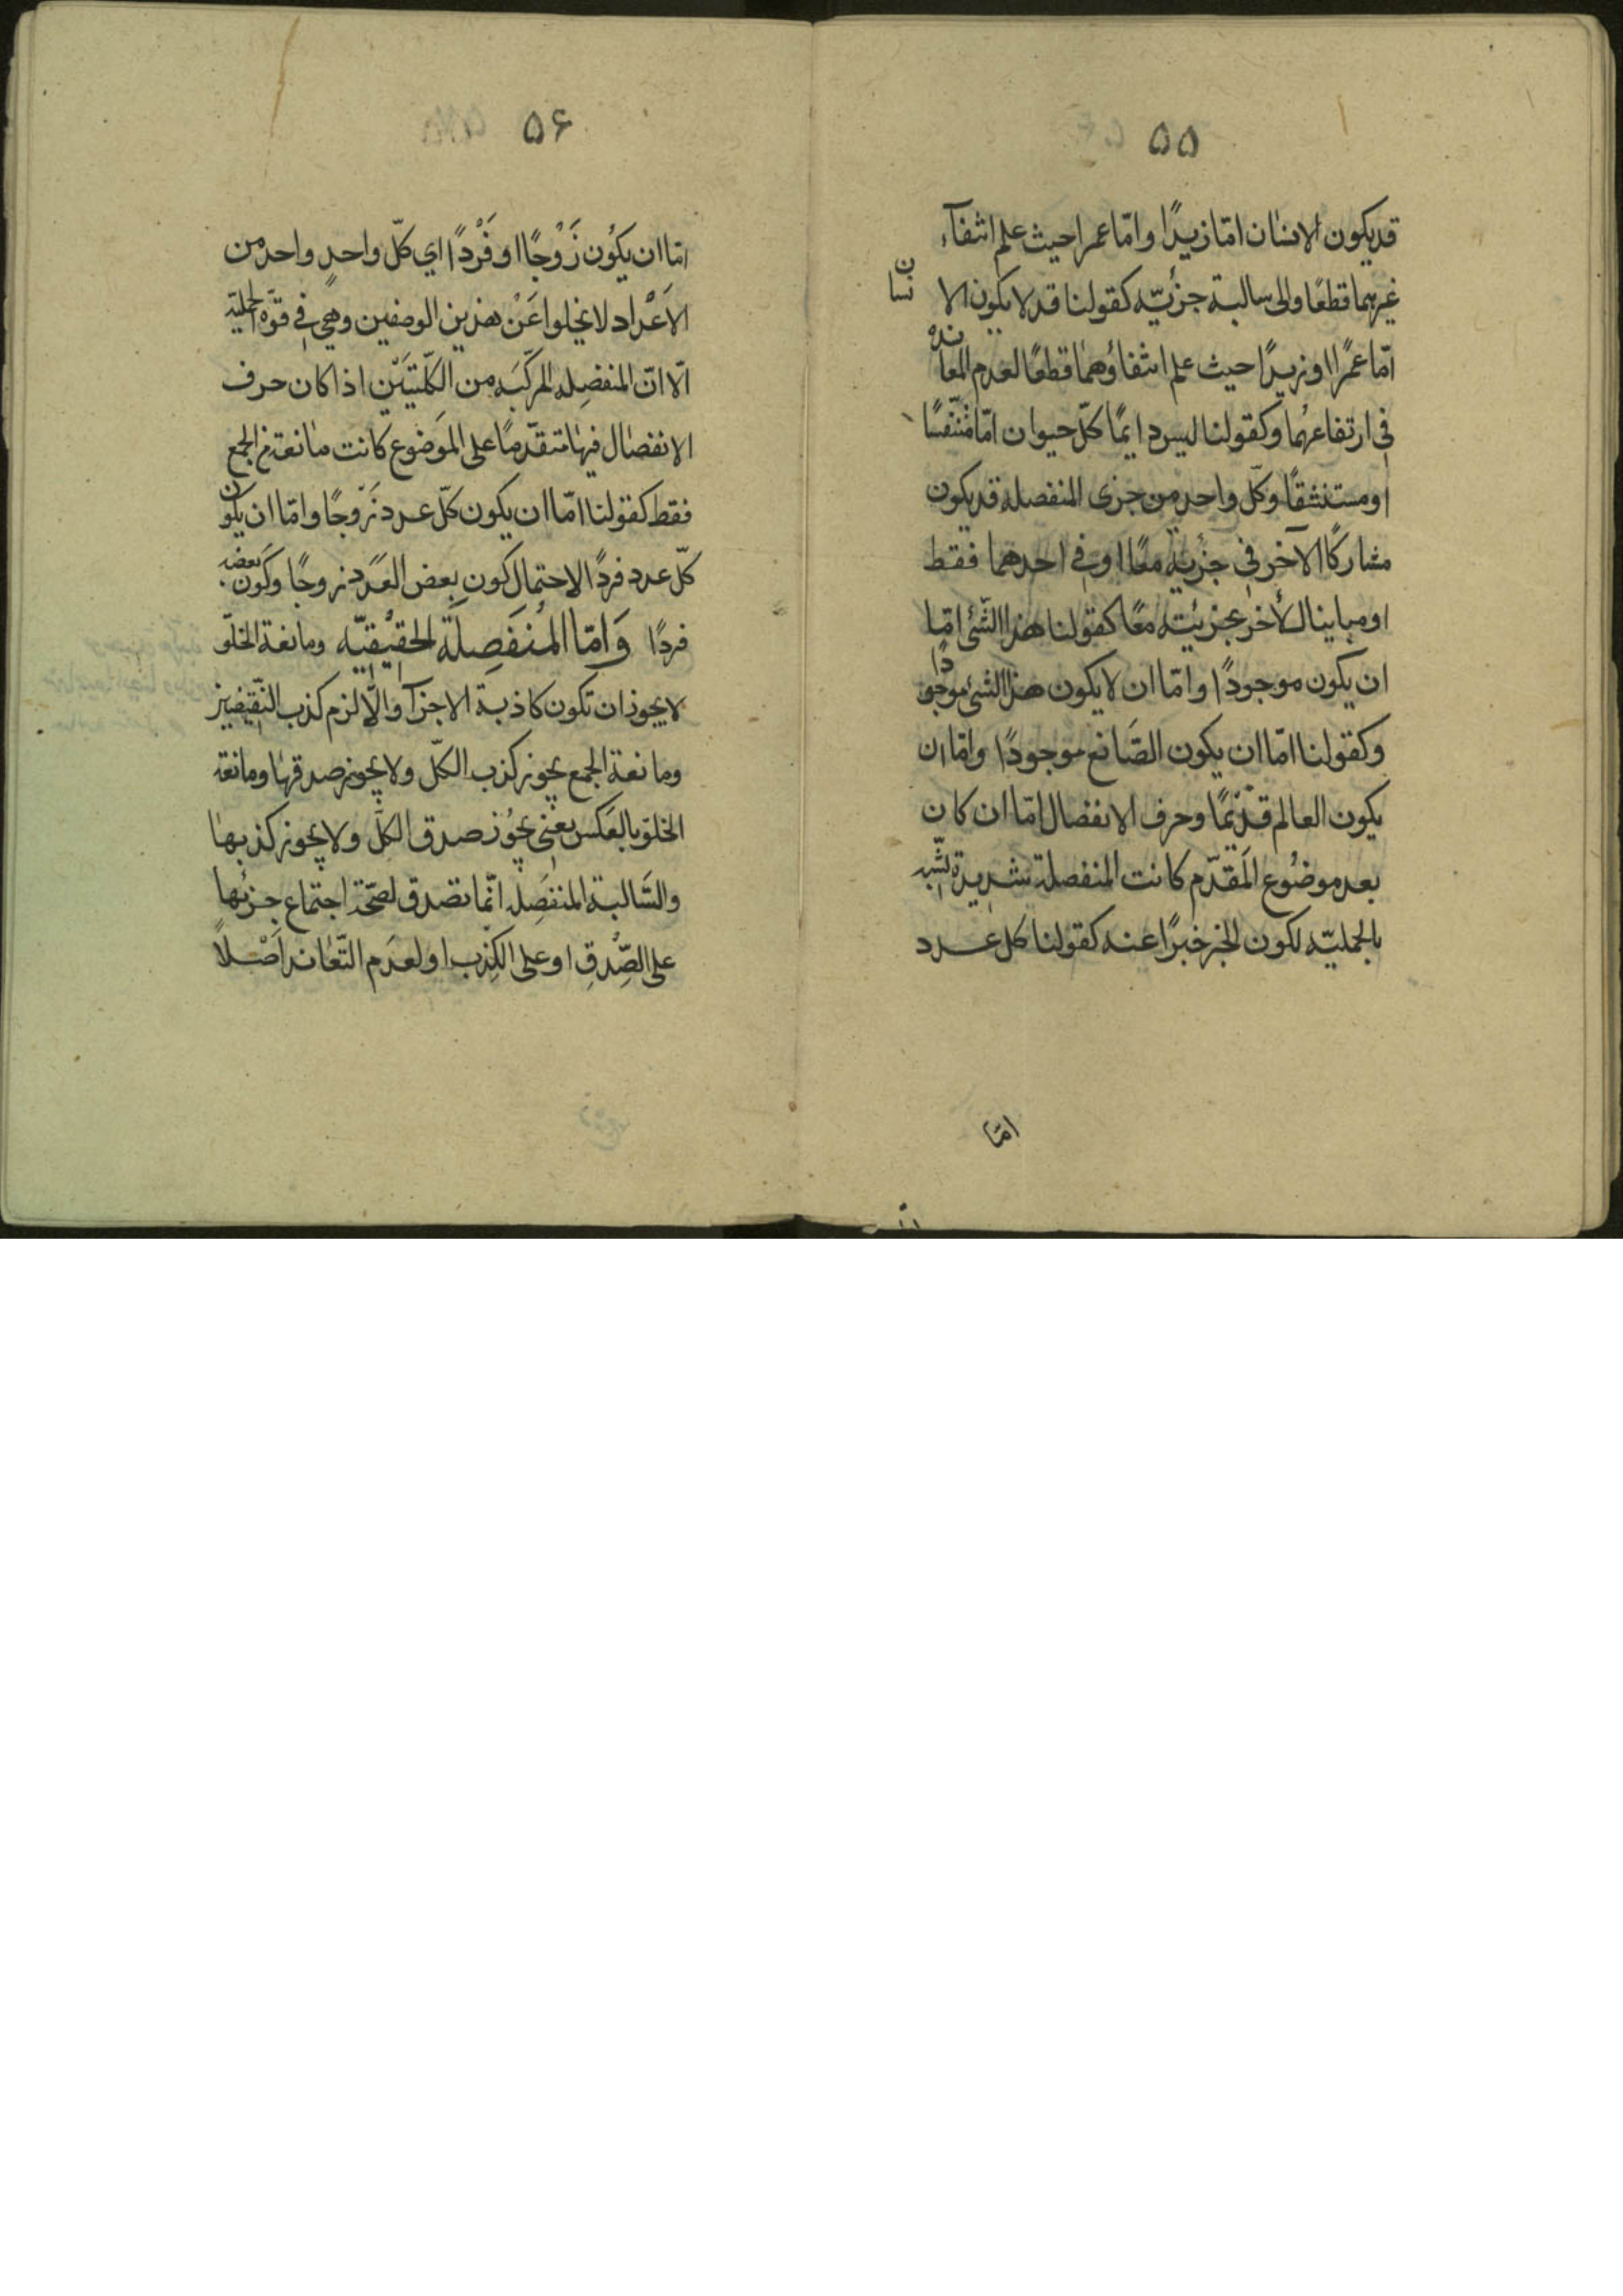 ۵۵
قد يكون الانسان امّا زيدًا وامّا عمرا حيث علم انتفآء
غيرهما قطعًا والى سالبة جزئيّه كقولنا قد لا يكون الانسان
امّا عمرًا او زيدًا حيث علم انتفاؤهما قطعًا لعدم المعاندة
فى ارتفاعهما وكقولنا ليس دايمًا كلّ حيوان امّا متنفّسًا
او مستنشقًا وكلّ واحد من جزى المنفصلة قد يكون
مشاركًا الآخر فى جزئيه معًا او فى احدهما فقط
او مباينا لأخر بجزئيته معًا كقولنا هذا الشّئ امّا
ان يكون موجودًا وامّا ان لا يكون هذا الشئ موجودًا
وكقولنا امّا ان يكون الصّانع موجودًا وامّا ان
يكون العالم قديمًا وحرف الانفصال امّا ان كان
بعد موضُوع المَقدّم كانت المنفصلة شديدة الشّبه
بالحمليّه لكون الخبر خبرًا عنه كقولنا كل عدد
امّا
۵۶
امّا ان يكُون زَوْجًا او فَرْدًا اي كلّ واحدٍ واحد من
الاَعْداد لا يخلوا عَنْ هذين الوصفين وهي فى قوّه الحمليّه
الّا انّ المنفصِله المركّبَه من الكلّيتَيْن اذا كان حرف
الانفصال فيها متقدّمًا على الموَضوع كانت مانعة الجمع
فقط كقولنا امّا ان يكون كلّ عدد زَوجًا وامّا ان يكون
كلّ عدد فردًا لاحتمال كون بعض العَدد زوجًا وكون بعضه
فردًا وَامّا المُنفَصِلَة الحقيُقيّه ومانعة الخلّو
لا يجوز ان تكون كاذبة الاجزآ والّا لزم كذب النّقيضين
ومانعة الجمع يجوز كذب الكلّ ولا يجوز صدقها ومانعة
الخلو بالعَكس يعنى يجُوز صدق الكلّ ولا يجوز كذبها
والسّالبة المنفَصِله انّما تصدق لصحّة اجتماع جزئها
على الصِّدقِ او على الكِذب او لعدَم التّعاند اَصْلاً